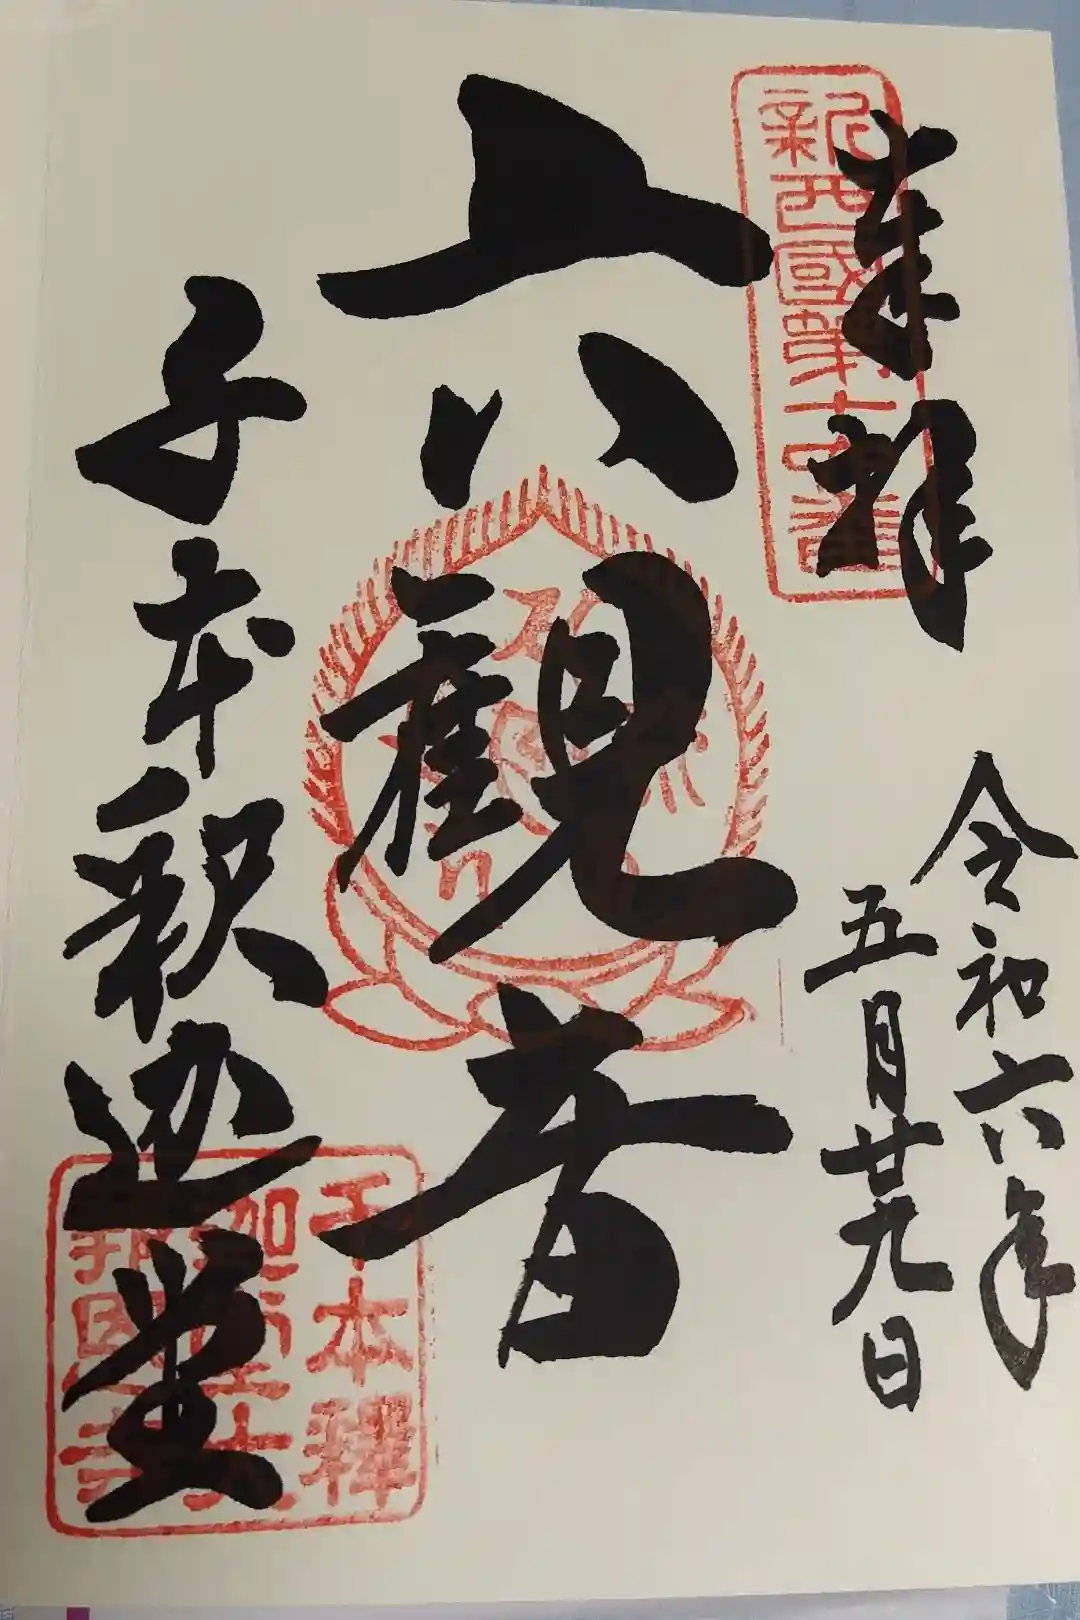 奉拝
令和六年
五月廿九日
六観音
千本釈迦堂
新西國第十六番
千本釋
迦堂大
報恩寺